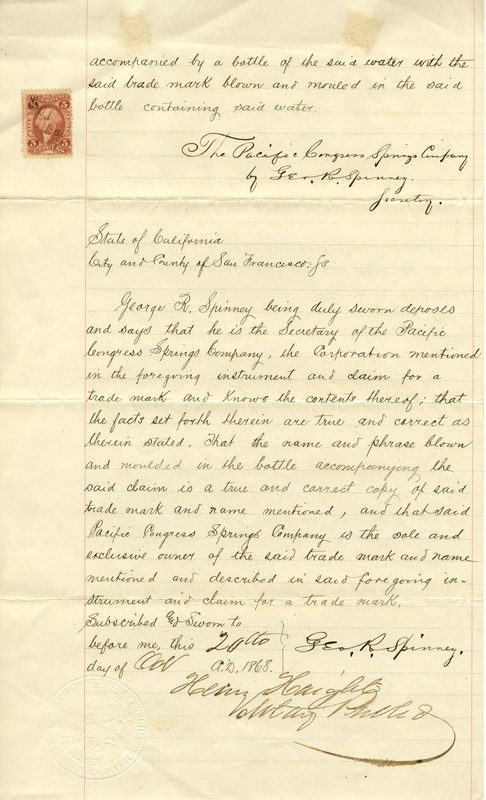 accompanied by a bottle of the said water with the
said trade mark blown and mouled in the said
bottle containing said water.
The Pacific Congress Springs Company
by Geo. R. Spinney.
Secretary.
State of California
City and County of San Francisco, ss
George R. Spinney being duly sworn deposes
and says that he is the Secretary of the Pacific
Congress Springs Company, the Corporation mentioned
in the foregoing instrument and claim for a
trade mark and knows the contents thereof; that
the facts set forth therein are true and correct as
therein stated. That the name and phrase blown
and moulded in the bottle accompanying the
said claim is a true and correct copy of said
trade mark and name mentioned, and that said
Pacific Congress Springs Company is the sole and
exclusive owner of the said trade mark and name
mentioned and described in said foregoing in-
strument and claim for a trade mark.
Subscribed & Sworn to
before me, this 20th
day of Oct A.D. 1868.
Geo. R. Spinney.
Henry Haight
Notary Public